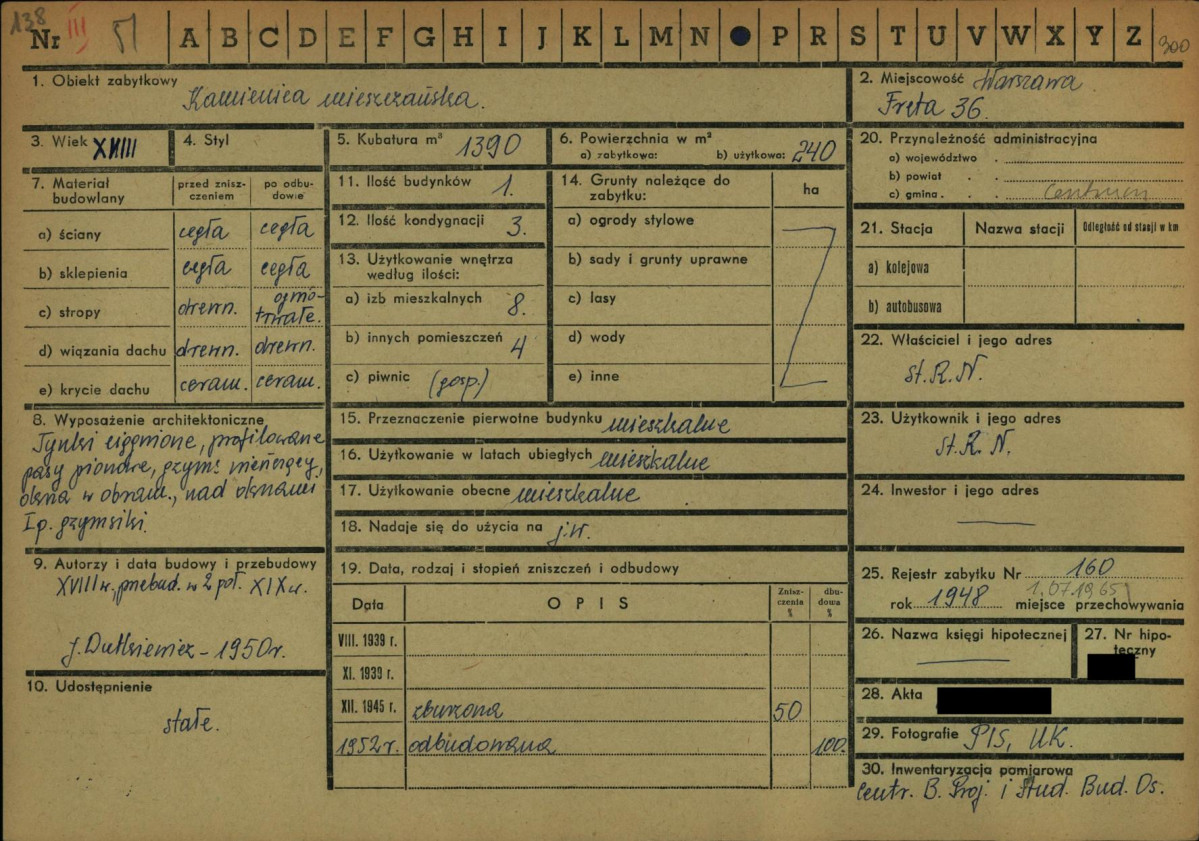 138
Nr III 51 A B C D E F G H I J K L M N P R S T U V W X Y Z 300
1. Obiekt zabytkowy
Kamienica mieszczańska.
2. Miejscowość Warszawa
Freta 36.
3. Wiek XVIII
4. Styl
5. Kubatura m³ 1390
6. Powierzchnia w m²
a) zabytkowa: b) użytkowa: 240
7. Materiał budowlany
przed zniszczeniem
po odbudowie
a) ściany cegła cegła
b) sklepienia cegła cegła
c) stropy drewn. ogniotrwałe.
d) wiązania dachu drewn. drewn.
e) krycie dachu ceram. ceram.
8. Wyposażenie architektoniczne
Tynki ciągnione, profilowane
pasy pionowe, gzyms wieńczący,
okna w obram., nad oknami
I p. gzymsiki.
9. Autorzy i data budowy i przebudowy
XVIII w., przebud. w 2 poł. XIX w.
J. Dutkiewicz – 1950 r.
10. Udostępnienie
stałe.
11. Ilość budynków 1.
12. Ilość kondygnacji 3.
13. Użytkowanie wnętrza
według ilości:
a) izb mieszkalnych 8.
b) innych pomieszczeń 4
c) piwnic (gosp.)
14. Grunty należące do
zabytku: ha
a) ogrody stylowe
b) sady i grunty uprawne
c) lasy
d) wody
e) inne
15. Przeznaczenie pierwotne budynku mieszkalne
16. Użytkowanie w latach ubiegłych mieszkalne
17. Użytkowanie obecne mieszkalne
18. Nadaje się do użycia na j.w.
19. Data, rodzaj i stopień zniszczeń i odbudowy
Data OPIS Zniszczenia % dbudowa %
VIII. 1939 r.
XI. 1939 r.
XII. 1945 r. zburzona 50
1952 r. odbudowana 100.
20. Przynależność administracyjna
a) województwo
b) powiat
c) gmina Centrum
21. Stacja Nazwa stacji Odległość od stacji w km
a) kolejowa
b) autobusowa
22. Właściciel i jego adres
St. R. N.
23. Użytkownik i jego adres
St. R. N.
24. Inwestor i jego adres
25. Rejestr zabytku Nr 160
1.07.1965
rok 1948 miejsce przechowywania
26. Nazwa księgi hipotecznej
27. Nr hipoteczny
28. Akta
29. Fotografie PIS, UK.
30. Inwentaryzacja pomiarowa
Centr. B. Proj. i Stud. Bud. Os.